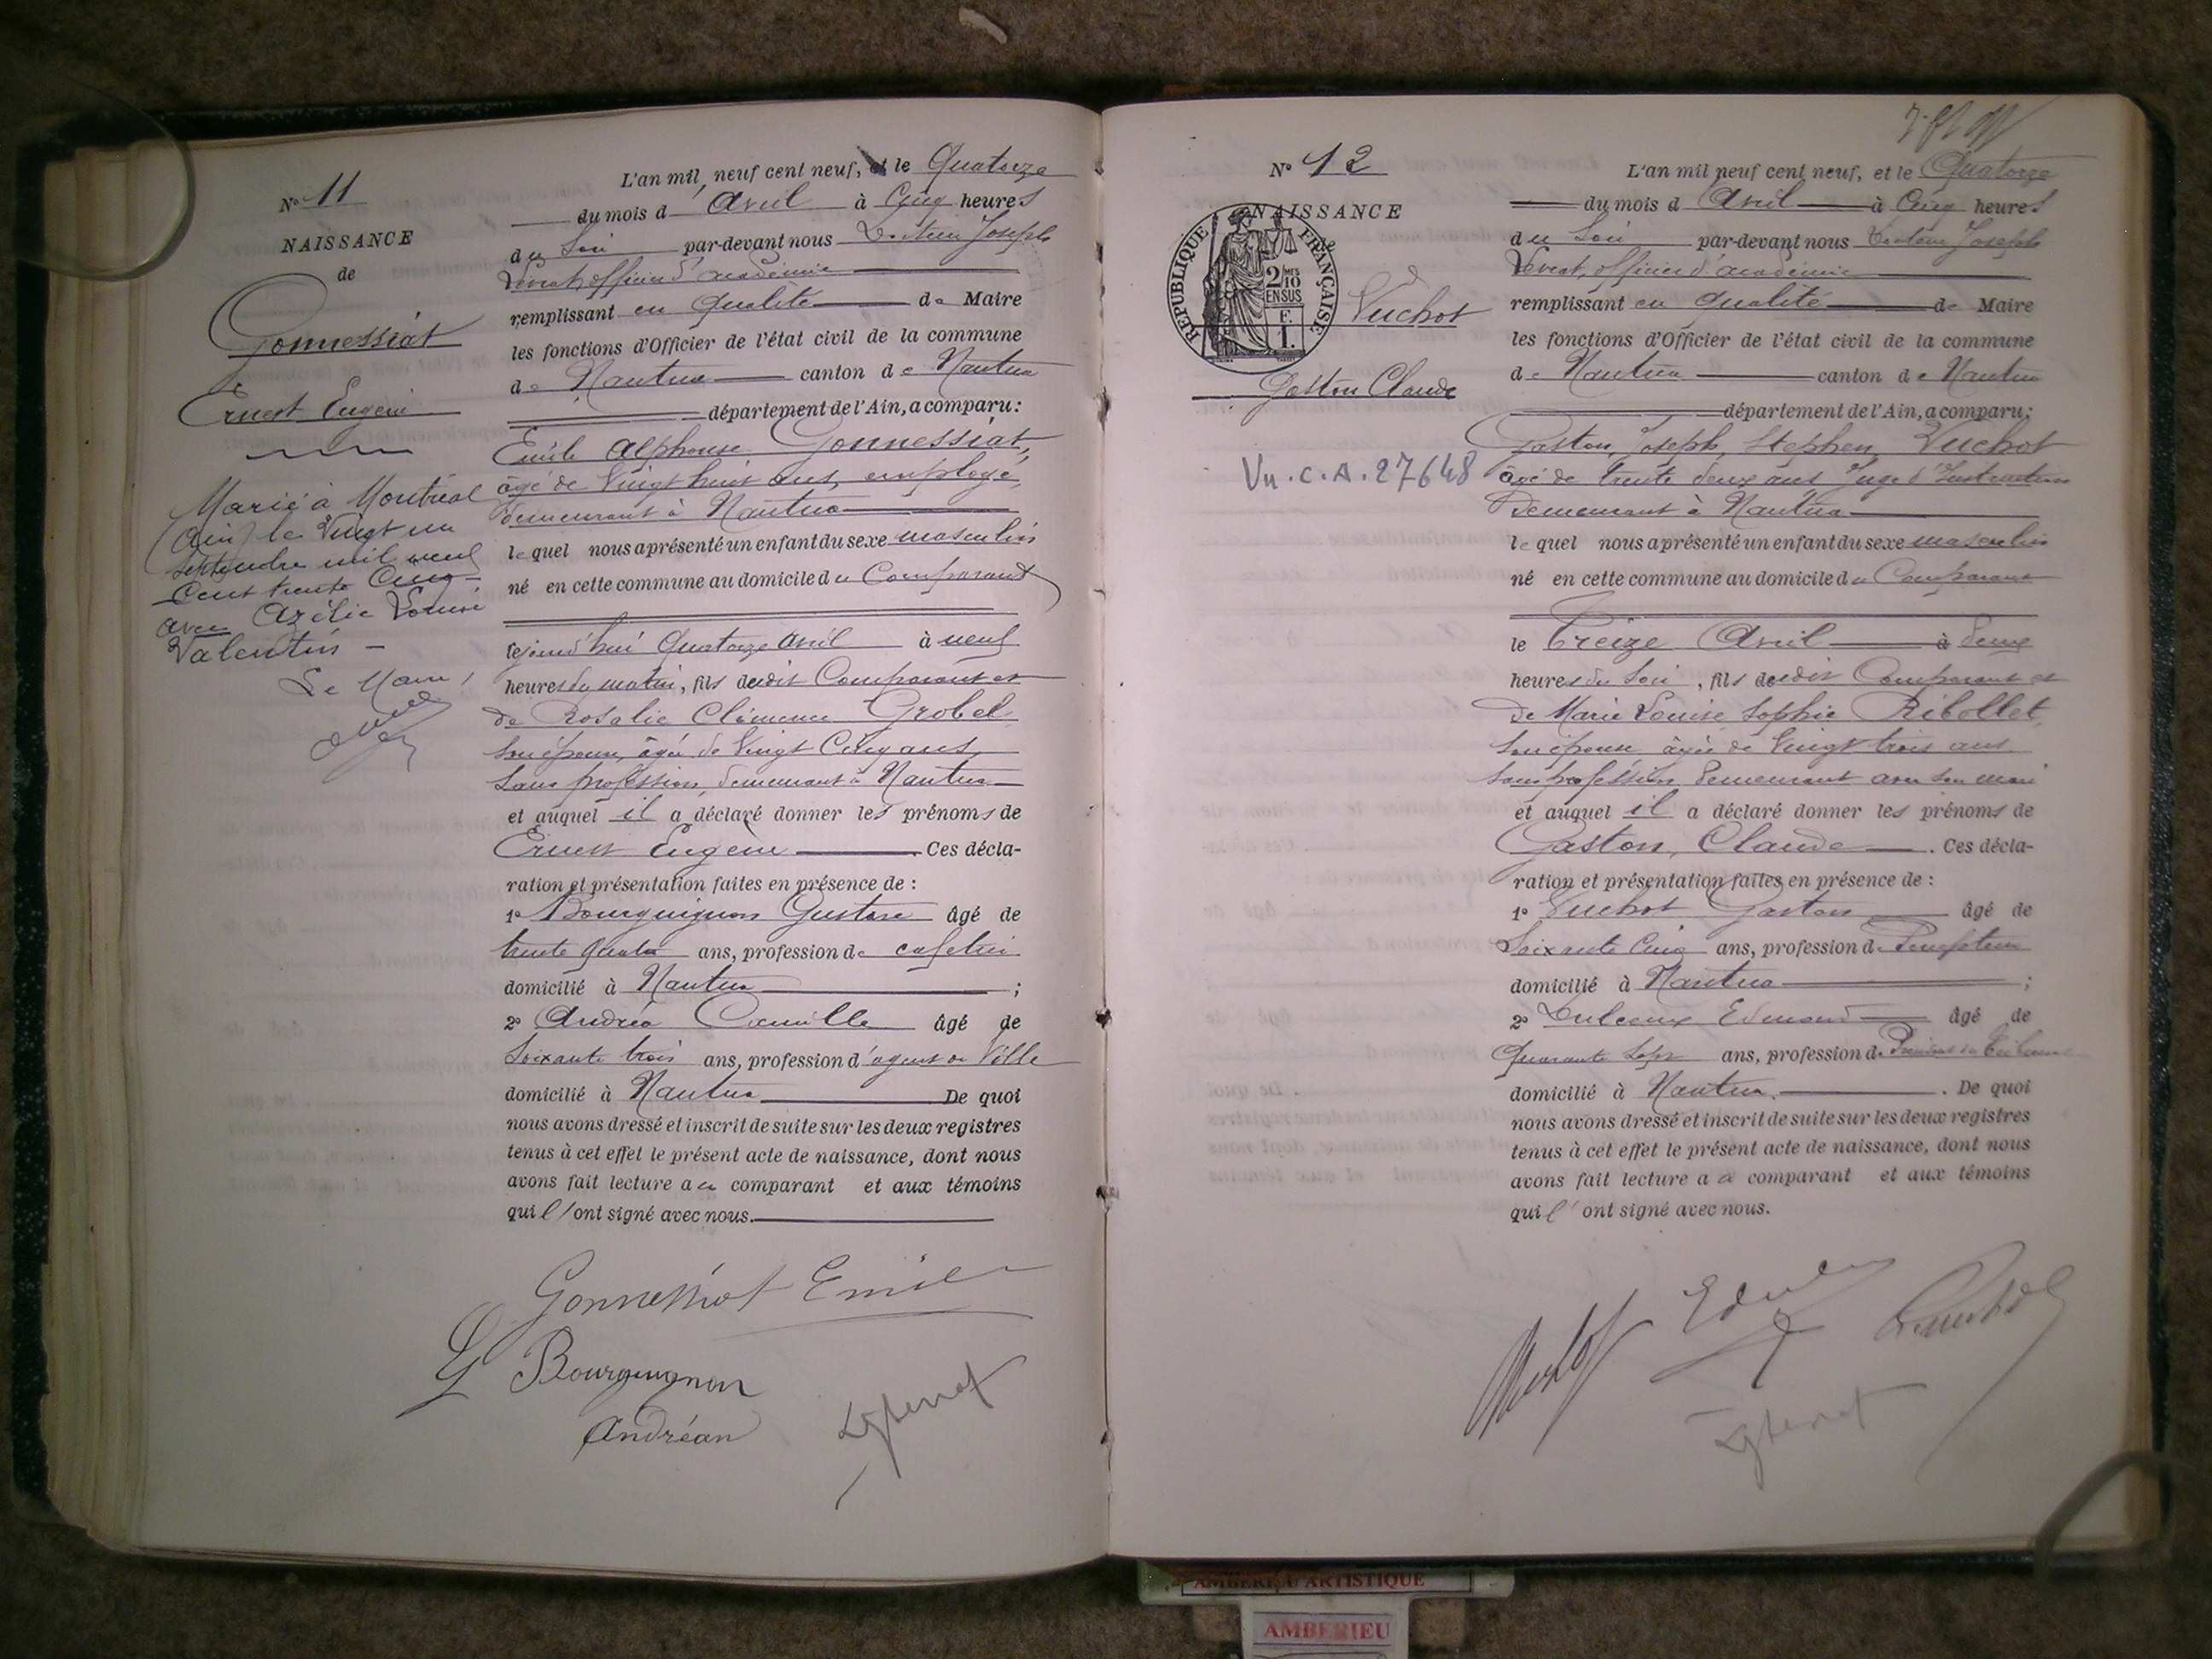 N° 11
NAISSANCE
de
Gonnessiat
Ernest Eugène
Marié à Montréal
(Ain) le Vingt un
septembre mil neuf
cent trente cinq
avec Azélie Louise
Valentin
Le Maire,
L'an mil neuf cent neuf, et le Quatorze
du mois d'Avril à Cinq heures
du Soir par-devant nous Docteur Joseph
officier d'académie
remplissant en qualité de Maire
les fonctions d'Officier de l'état civil de la commune
de Nantua canton de Nantua
département de l'Ain, a comparu :
Emile Alphonse Gonnessiat,
âgé de Vingt huit ans, employé,
demeurant à Nantua
lequel nous a présenté un enfant du sexe masculin
né en cette commune au domicile du Comparant
lejourd'hui Quatorze avril à neuf
heures du matin, fils dudit Comparant et
de Rosalie Clémence Grobel
son épouse, âgée de Vingt Cinq ans,
sans profession, demeurant à Nantua
et auquel il a déclaré donner les prénoms de
Ernest Eugène Ces décla-
ration et présentation faites en présence de :
1° Bourguignon Gustave âgé de
trente quatre ans, profession de cafetier
domicilié à Nantua ;
2° Andréa Camille âgé de
Soixante trois ans, profession d'agent de Ville
domicilié à Nantua De quoi
nous avons dressé et inscrit de suite sur les deux registres
tenus à cet effet le présent acte de naissance, dont nous
avons fait lecture au comparant et aux témoins
qui l'ont signé avec nous.
Gonnessiat Emile
G Bourguignon
Andréan
N° 12
NAISSANCE
RÉPUBLIQUE FRANÇAISE
2/10 EN SUS
F. 1.
Vuchot
Gaston Claude
Vu. C. A. 27648
L'an mil neuf cent neuf, et le Quatorze
du mois d'Avril à Cinq heures
du Soir par-devant nous Docteur Joseph
officier d'académie
remplissant en qualité de Maire
les fonctions d'Officier de l'état civil de la commune
de Nantua canton de Nantua
département de l'Ain, a comparu :
Gaston, Joseph, Stephen Vuchot
âgé de trente deux ans Juge d'Instruction
Demeurant à Nantua
lequel nous a présenté un enfant du sexe masculin
né en cette commune au domicile du Comparant
le Treize Avril à deux
heures du Soir, fils dudit Comparant et
de Marie Louise Sophie Ribollet
son épouse âgée de Vingt trois ans
sans profession, demeurant avec son mari
et auquel il a déclaré donner les prénoms de
Gaston, Claude . Ces décla-
ration et présentation faites en présence de :
1° Vuchot Gaston âgé de
Soixante Cinq ans, profession de
domicilié à Nantua ;
2° Edmond âgé de
Quarante Sept ans, profession de
domicilié à Nantua . De quoi
nous avons dressé et inscrit de suite sur les deux registres
tenus à cet effet le présent acte de naissance, dont nous
avons fait lecture au comparant et aux témoins
qui l'ont signé avec nous.
AMBERIEU ARTISTIQUE
AMBERIEU